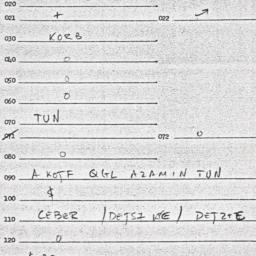 020
021 + 022
030 KORB
040 0
050 0
060 0
070 TUN
071 072 0
080 0
090 A KOTF QGL AZAMIN TUN
100 $
110 CEBER /DETSZ /
120 0